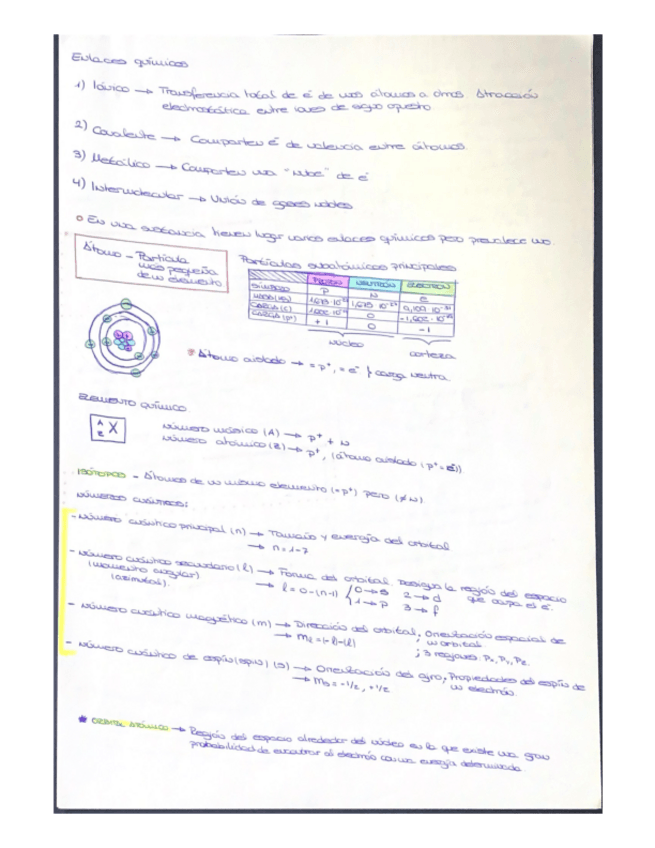 Enlaces químicos
1) Iónico → Transferencia total de é de unos átomos a otros. Atracción
electrostática entre iones de signo opuesto
2) Covalente → Comparten é de valencia entre átomos.
3) Metálico → Comparten una "nube" de é
4) Intermolecular → Unión de
○ En una sustancia tienen lugar varios enlaces químicos pero prevalece uno.
Átomo - Partícula
más pequeña
de un elemento
Partículas subatómicas principales
PROTÓN NEUTRÓN ELECTRÓN
SÍMBOLO P N e
MASA (kg) 1,673·10 1,675·10⁻²⁷ 9,109·10⁻³¹
CARGA (C) 1,602·10 0 -1,602·10
CARGA (p⁺) +1 0 -1
núcleo corteza
Átomo aislado → = p⁺, = e⁻ } carga neutra.
ELEMENTO QUÍMICO
A
Z X
Número másico (A) → p⁺ + N
Número atómico (Z) → p⁺, (átomo aislado (p⁺=é))
ISÓTOPOS - Átomos de un mismo elemento (=p⁺) pero (≠N)
NÚMEROS CUÁNTICOS:
- Número cuántico principal (n) → Tamaño y energía del orbital
→ n=1-7
- Número cuántico secundario (l) → Forma del orbital. Designa la región del espacio
(momento angular) que ocupa el é.
(azimutal). → l=0-(n-1) { 0→s 2→d
1→p 3→f
- Número cuántico magnético (m) → Dirección del orbital, Orientación espacial de
un orbital
→ mₗ=(-l)-(l) ; 3 regiones. Pₓ, Pᵧ, P_z.
- Número cuántico de espín (spin) (s) → Orientación del giro, Propiedades del espín de
un electrón.
→ mₛ=-1/2, +1/2
★ ORBITAL ATÓMICO → Región del espacio alrededor del núcleo en la que existe una gran
probabilidad de encontrar al electrón con una energía determinada.